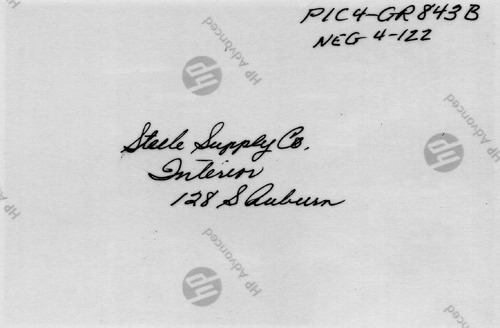 PIC4-GR843B
NEG 4-122
HP Advanced
HP Advanced
Steele Supply Co.
Interior
128 S Auburn
HP Advanced
HP Advanced
HP Advanced
HP Advanced